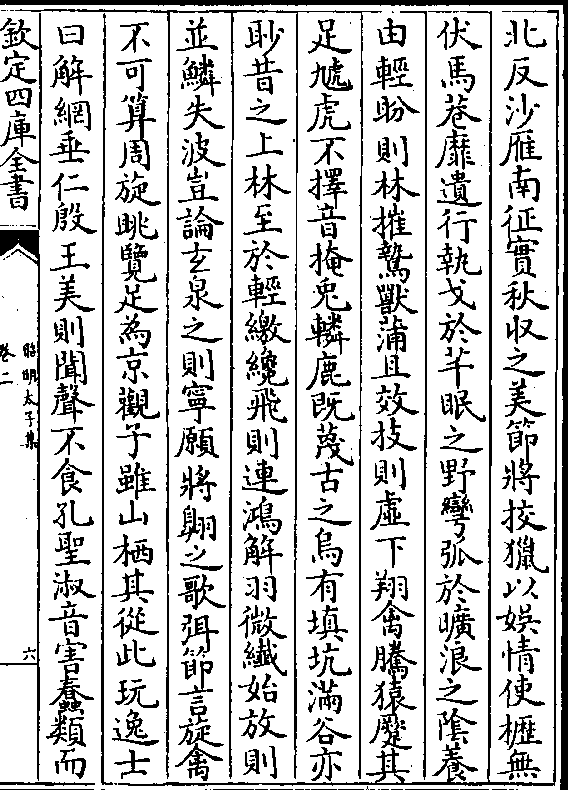 北反沙雁南征實秋収之美節將挍獵以娯情使櫪無
伏馬巷靡遺行執戈於芊眠之野彎弧於曠浪之隂養
由輕盼則林摧鷙獸蒲且效技則虛下翔禽騰猿蹙其
足虓虎不擇音掩兎轔鹿既蔑古之烏有填坑滿谷亦
眇昔之上林至於輕繳纔飛則連鴻解羽微纎始放則
並鱗失波豈論玄泉之則寧願將翺之歌弭節言旋禽
不可算周旋眺覽足為京觀子雖山栖其從此玩逸士
曰解網垂仁殷王美則聞聲不食孔聖淑音害蠢類而
欽定四庫全書
昭明太子集
卷二
六